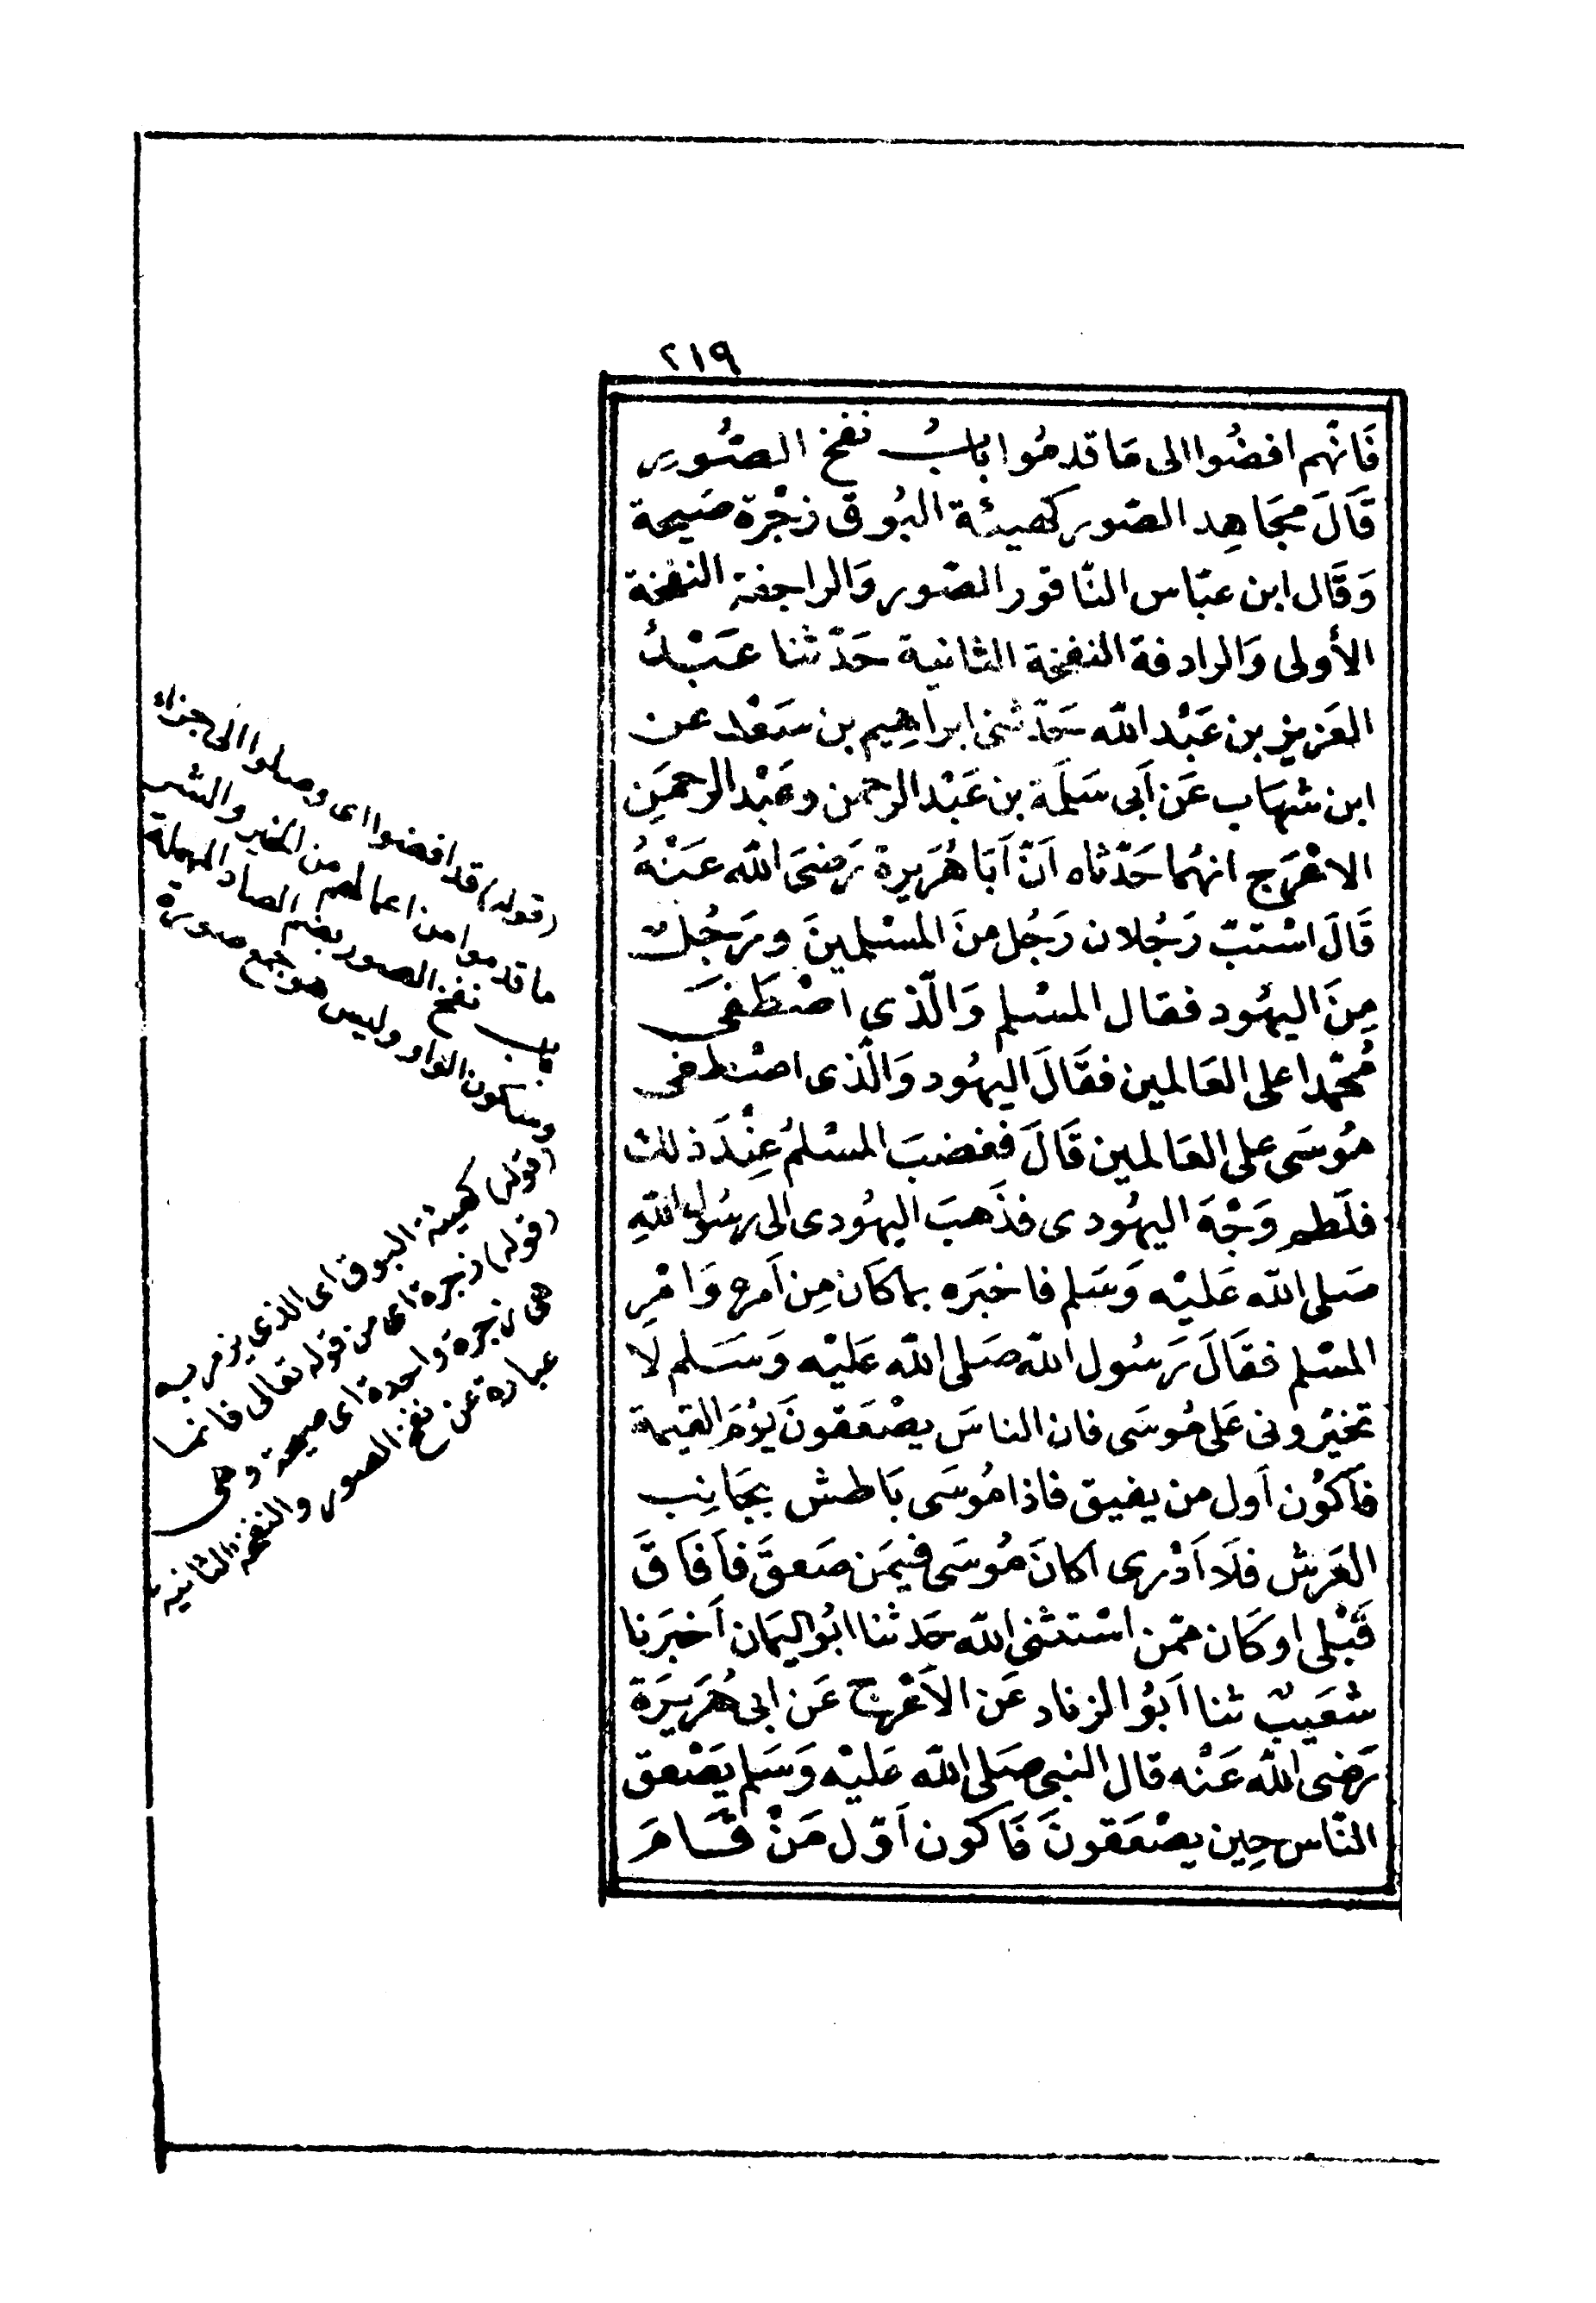 ٢١٩
فَانّهم افضُوا الى مَا قدمُوا بابُ نفخ الصُّورِ
قَالَ مجَاهِد الصّور كهيئة البُوق زجْرة صَيحة
وَقَال ابن عبّاس النّاقور الصّور وَالراجفة النفخة
الأولى وَالرادفة النفخة الثانية حَدّثنا عَبْدُ
العَزيز بن عَبْد الله حَدّثنى ابراهِيم بن سَعْد عن
ابن شهَاب عَن اَبى سَلَمَة بن عَبْد الرحمن وعَبْد الرحمَنِ
الاعْرَج انهُما حَدّثاه اَنّ اَبَا هُرَيرة رَضىَ الله عَنْهُ
قَالَ اسْتبّ رَجُلان رَجُل منَ المسْلمينَ ورَجُلٌ
مِنَ اليهُود فقال المسْلم وَالّذى اصْطَفىَ
مُحمّدا على العَالمين فقَالَ اليهُود وَالّذى اصْطفى
مُوسَى على العَالمين قَالَ فغضبَ المسْلمُ عِنْدَ ذلك
فلَطم وَجْهَ اليهُودى فذَهبَ اليهُودى الى رسُول اللهِ
صَلى الله عَليْه وَسَلم فاخبَره بماكَان مِن اَمره وَامْرِ
المسْلم فقَالَ رَسُول الله صَلى الله عَليْه وَسَلم لَا
تخيّرونى عَلى مُوسَى فان الناسَ يصْعَقونَ يوْمَ القيمة
فاَكوُن اَول من يفيق فاذا مُوسَى بَاطش بجَانِب
العَرش فلَا اَدْرى اكانَ مُوسَى فيمَن صَعقَ فاَفَاقَ
قَبْلى او كَان ممّن اسْتثنى الله حَدثنا ابُو اليمَان اَخبَرنا
شعَيبٌ ثنا اَبُو الزناد عَن الاَعْرج عَن ابى هُرَيرَة
رَضى الله عَنْه قال النبى صَلى الله عَليْه وَسَلم يَصْعق
النّاس حِين يصْعَقونَ فَاكون اَوّل مَنْ قَامَ
(قوله) قد افضوا اى وصلوا الى جزاء
ما قدموا من اعمالهم من الخير والشر
باب نفخ الصور بضم الصاد المهملة
وسكون الواو وليس هو جمع صورة
(قوله) كهيئة البوق اى الذى يزمر به
(قوله) زجرة اى من قوله تعالى فانما
هى زجرة واحدة اى صيحة وهى
عبارة عن نفخ الصور والنفخة الثانية